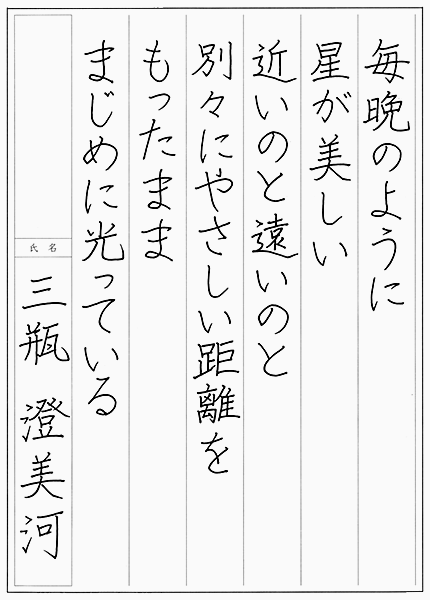 毎晩のように
星が美しい
近いのと遠いのと
別々にやさしい距離を
もったまま
まじめに光っている
氏名
三瓶 澄美河